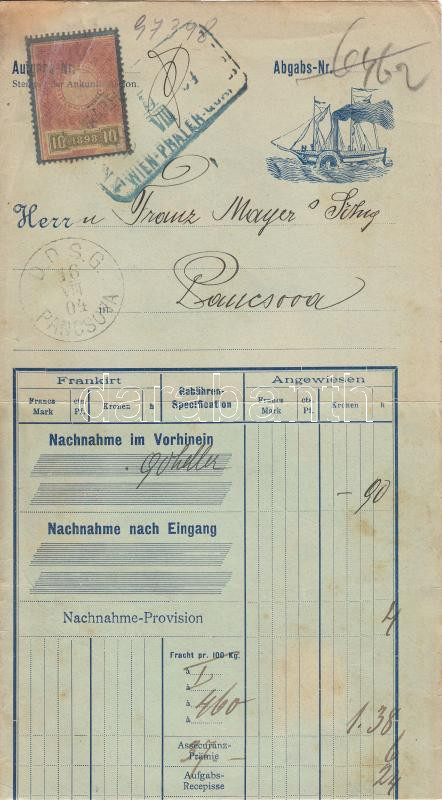 97398
Aufgabs-Nr.
Abgabs-Nr. 6462
Stempel der Ankunftsstation.
10 1898 10
VIII
WIEN-PRATER-QUAI
Herrn Franz Mayer's Sohn
Pancsova
D. D. S. G.
16
VIII
04
PANCSOVA
in
Frankirt
Gebühren-Specification
Angewiesen
Francs Mark
cts Pf.
Kronen
h
Francs Mark
cts Pf.
Kronen
h
darabanth
Nachnahme im Vorhinein
90 heller
— 90
Nachnahme nach Eingang
Nachnahme-Provision
4
Fracht pr. 100 Kg.
à I
à
à 460
à
1.38
Assecuranz-Prämie
6
Aufgabs-Recepisse
24